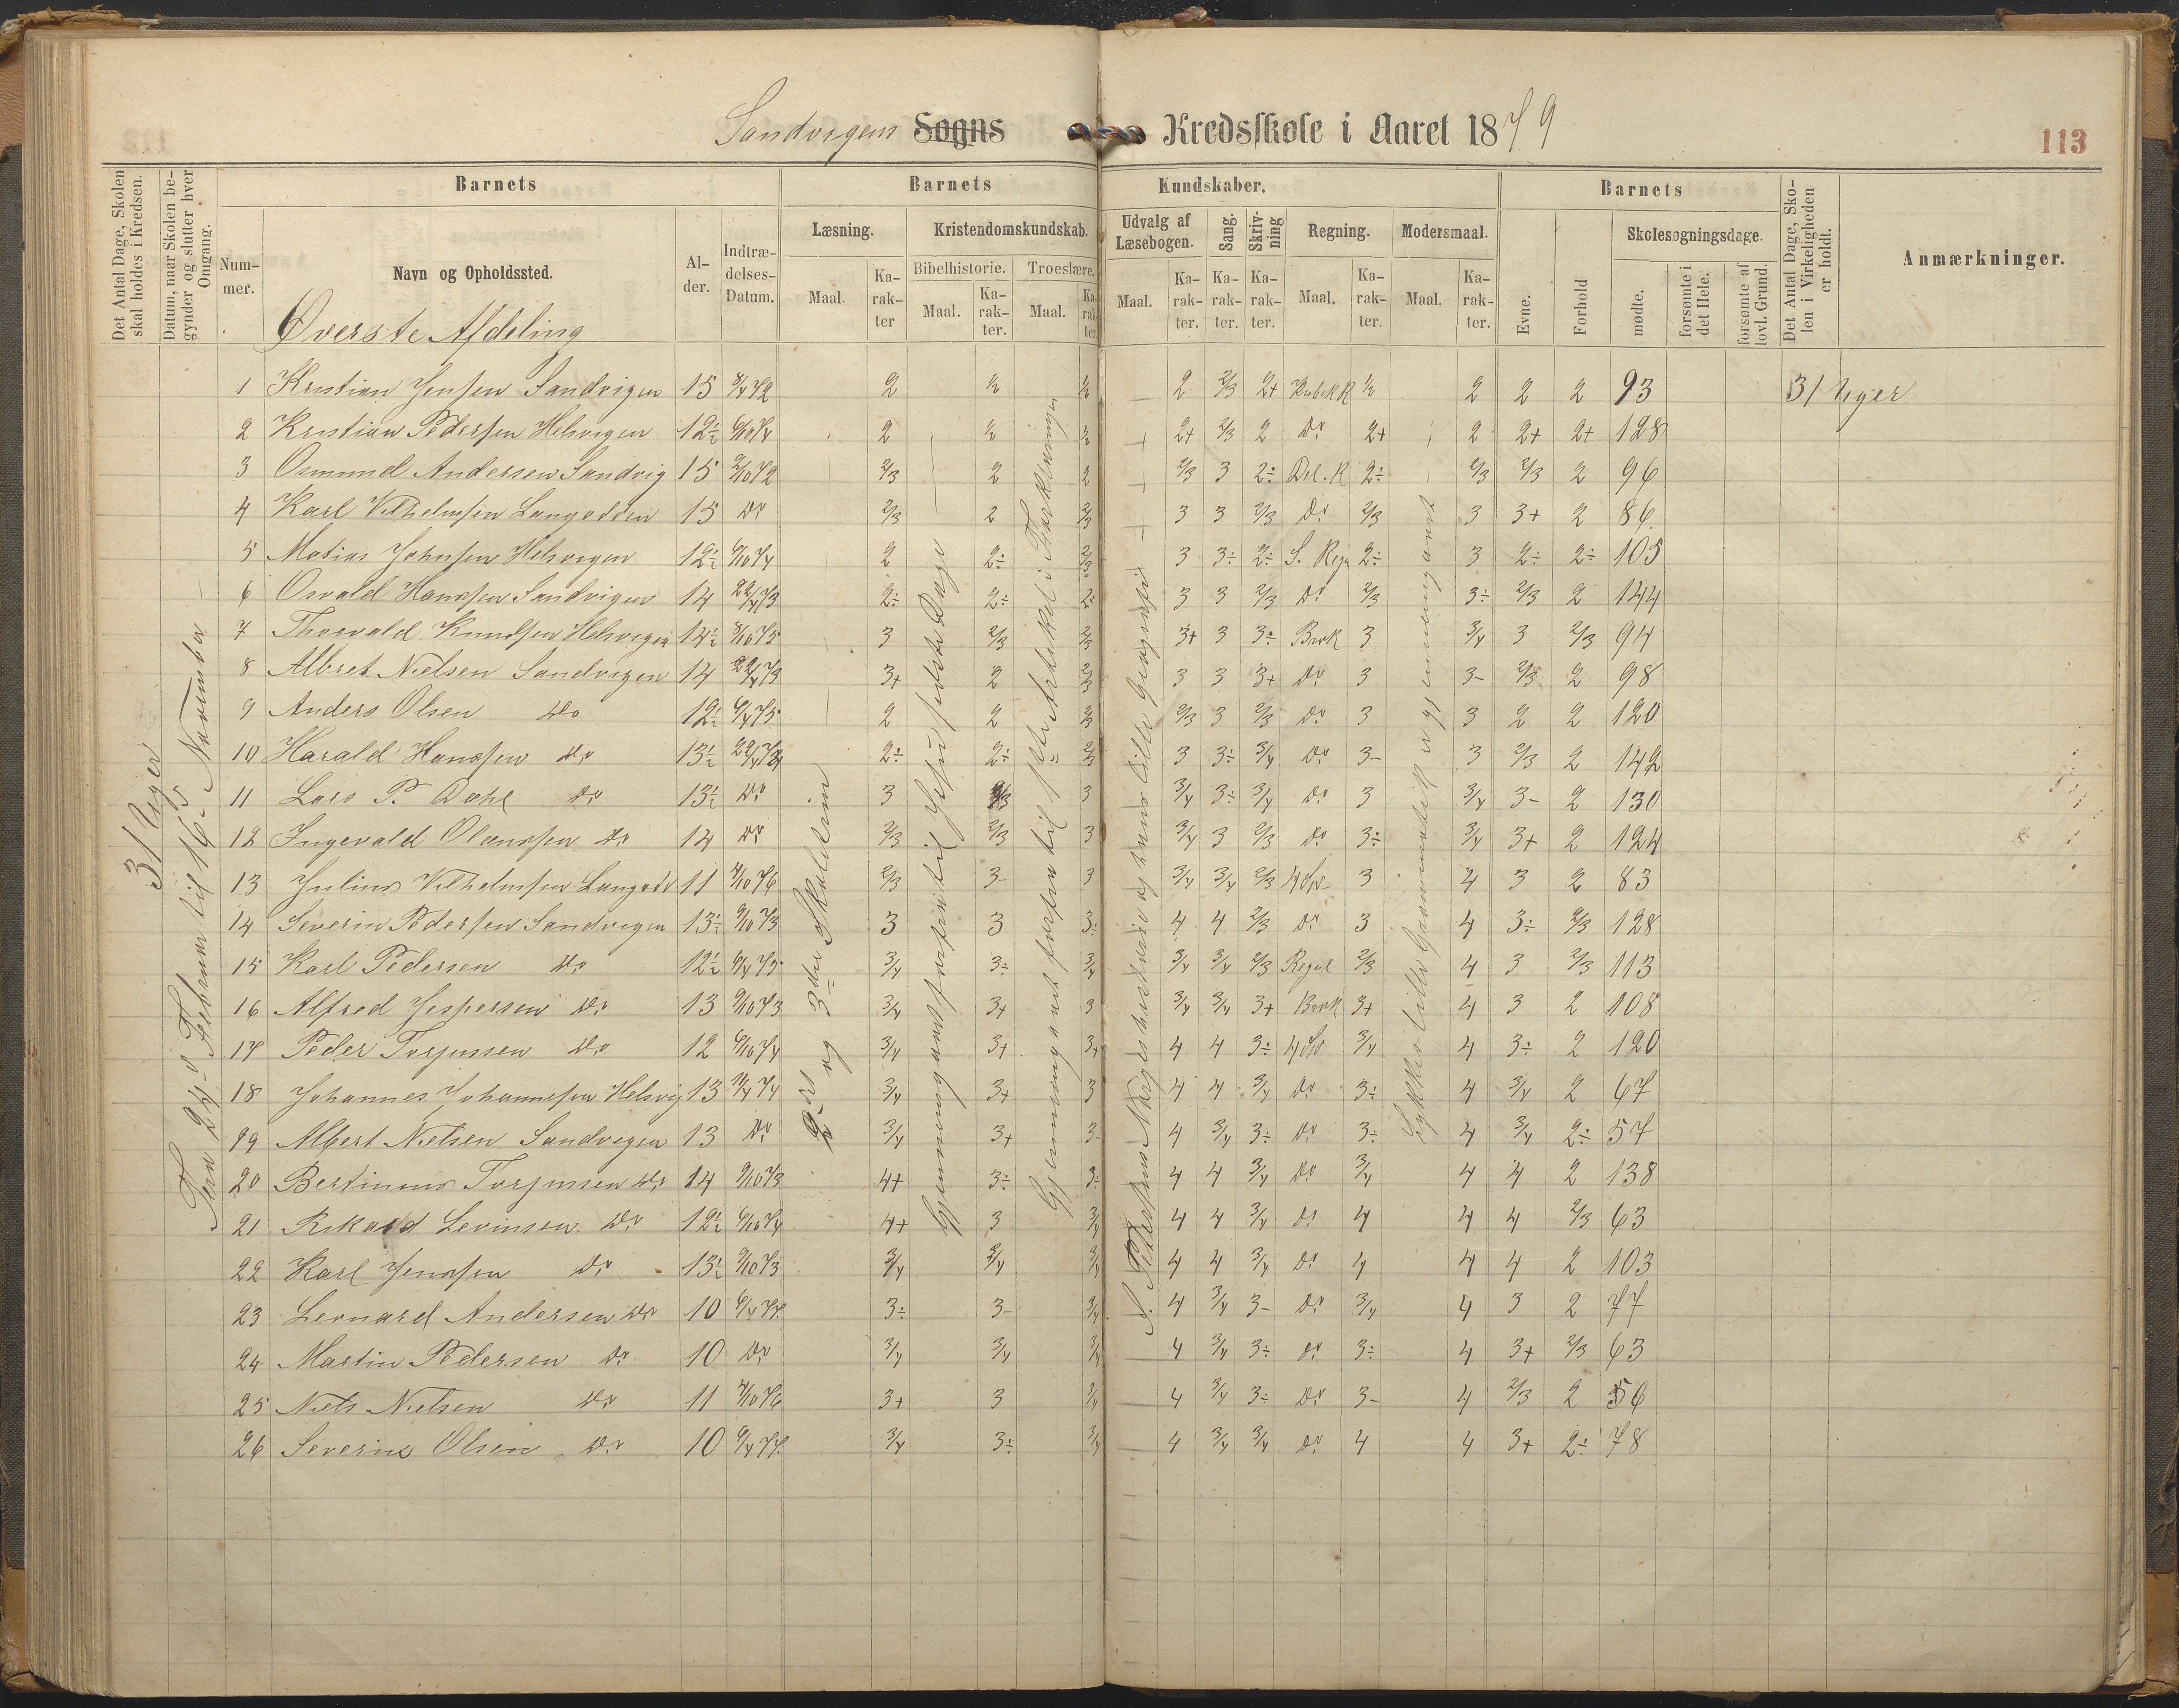 Sandvigens Sogns Kredsskole i Aaret 1879
113
Det Antal Dage, Skolen skal holdes i Kredsen.
Datum, naar Skolen begynder og slutter hver Omgang.
Barnets
Nummer.
Navn og Opholdssted.
Alder.
Indtrædelses-Datum.
Barnets Kundskaber.
Læsning.
Maal.
Karakter
Kristendomskundskab.
Bibelhistorie.
Maal.
Karakter.
Troeslære.
Maal.
Karakter
Udvalg af Læsebogen.
Maal.
Karakter.
Sang.
Karakter.
Skrivning
Karakter.
Regning.
Maal.
Karakter.
Modersmaal.
Maal.
Karakter.
Barnets
Evne.
Forhold
Skolesøgningsdage.
mødte.
forsømte i det Hele.
forsømte af lovl. Grund.
Det Antal Dage, Skolen i Virkeligheden er holdt.
Anmærkninger.
Øverste Afdeling
31 Uger
Fra 24de Februar til 16de November
2det og 3die Skoletrin
1 Kristian Jensen Sandvigen 15 8/4 72 2 ½ ½ 2 2/3 2+ Kubik R ½ 2 2 2 93 31 Uger
2 Kristian Pedersen Helsvigen 12½ 6/10 74 2 ½ ½ 2+ 2/3 2 Do 2+ 2 2+ 2+ 128
3 Osmund Andersen Sandvig 15 2/10 72 2/3 2 2 2/3 3 2÷ Del. R 2÷ 2/3 2/3 2 96
4 Karl Vilhelmsen Langodden 15 Do 2/3 2 2/3 3 3 2/3 Do 2/3 3 3+ 2 86
5 Matias Johnsen Helsvigen 12½ 6/10 74 2 2÷ 2/3 3 3÷ 2÷ S. Regu 2÷ 3 2÷ 2÷ 105
6 Osvald Hansen Sandvigen 14 22/4 73 2÷ 2÷ 2÷ 3 3 2/3 Do 2/3 3÷ 2/3 2 144
7 Thorvald Knudsen Helsvigen 14½ 8/10 75 3 2/3 2/3 3+ 3 3÷ Brøk 3 3/4 3 2/3 94
8 Albret Nielsen Sandvigen 14 22/4 73 3+ 2 2/3 3 3 3+ Do 3 3- 2/3 2 98
9 Anders Olsen Do 12½ 6/4 75 2 2 2/3 2/3 3 2/3 Do 3 3 2 2 120
10 Harald Hansen Do 13½ 22/4 73 2÷ 2÷ 2/3 3 3÷ 3/4 Do 3- 3 2/3 2 142
11 Lars P. Dahl Do 13½ Do 3 2/3 3 3/4 3÷ 3/4 Do 3 3/4 3- 2 130
12 Ingevald Olaussen Do 14 Do 2/3 2/3 3 3/4 3 2/3 Do 3÷ 3/4 3+ 2 124
13 Julius Vilhelmsen Langodd 11 4/10 76 2/3 3- 3 3/4 3/4 2/3 4 Sp 3 4 3 2 83
14 Severin Pedersen Sandvigen 13½ 9/10 73 3 3 3÷ 4 4 2/3 Do 3 4 3÷ 2/3 128
15 Karl Pedersen Do 12½ 6/4 75 3/4 3÷ 3/4 3/4 3/4 2/3 Regul 2/3 4 3 2/3 113
16 Alfred Jespersen Do 13 9/10 73 3/4 3+ 3 3/4 3/4 3+ Brøk 3+ 4 3 2 108
17 Peder Torjussen Do 12 6/10 74 3/4 3+ 3+ 4 4 3÷ 4 Sp 3/4 4 3÷ 2 120
18 Johannes Johannesen Helsvig 13 11/4 74 3/4 3+ 3 4 4 3/4 Do 3÷ 4 3/4 2 67
19 Albert Nielsen Sandvigen 13 Do 3/4 3+ 3- 4 3/4 3÷ Do 3÷ 4 3/4 2÷ 57
20 Bertinius Torjussen Do 14 9/10 73 4+ 3÷ 3÷ 4 4 3/4 Do 3/4 4 4 2 138
21 Rikard Levinsen Do 12½ 6/10 74 4+ 3 3/4 4 4 3/4 Do 4 4 4 2/3 63
22 Karl Jensen Do 13½ 9/10 73 3/4 3/4 3/4 4 4 3/4 Do 4 4 4 2 103
23 Leonard Andersen Do 10 6/4 77 3÷ 3- 3/4 4 3/4 3- Do 3/4 4 3 2 77
24 Martin Pedersen Do 10 Do 3/4 3/4 3/4 4 3/4 3÷ Do 3÷ 4 3+ 2/3 63
25 Niels Nielsen Do 11 4/10 76 3+ 3 3/4 4 3/4 3÷ Do 3- 4 2/3 2 56
26 Severin Olsen Do 10 6/4 77 3/4 3÷ 3/4 4 3/4 3/4 Do 4 4 3+ 2÷ 78
Gjennemgaaet forfra til Jesu sidste Dage
Gjennemgaaet forfra til 1ste Artikel i Forklaringen
S. Petersens og hans lille Geografi
Løkkes lille Grammatik er gjennemgaaet